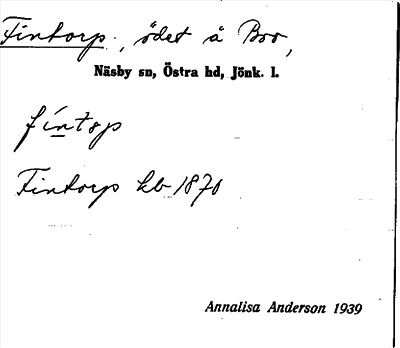 Fintorp, ödet å Boo,
Näsby sn, Östra hd, Jönk. l.
fíntɵp
Fintorp kb 1870
Annalisa Anderson 1939